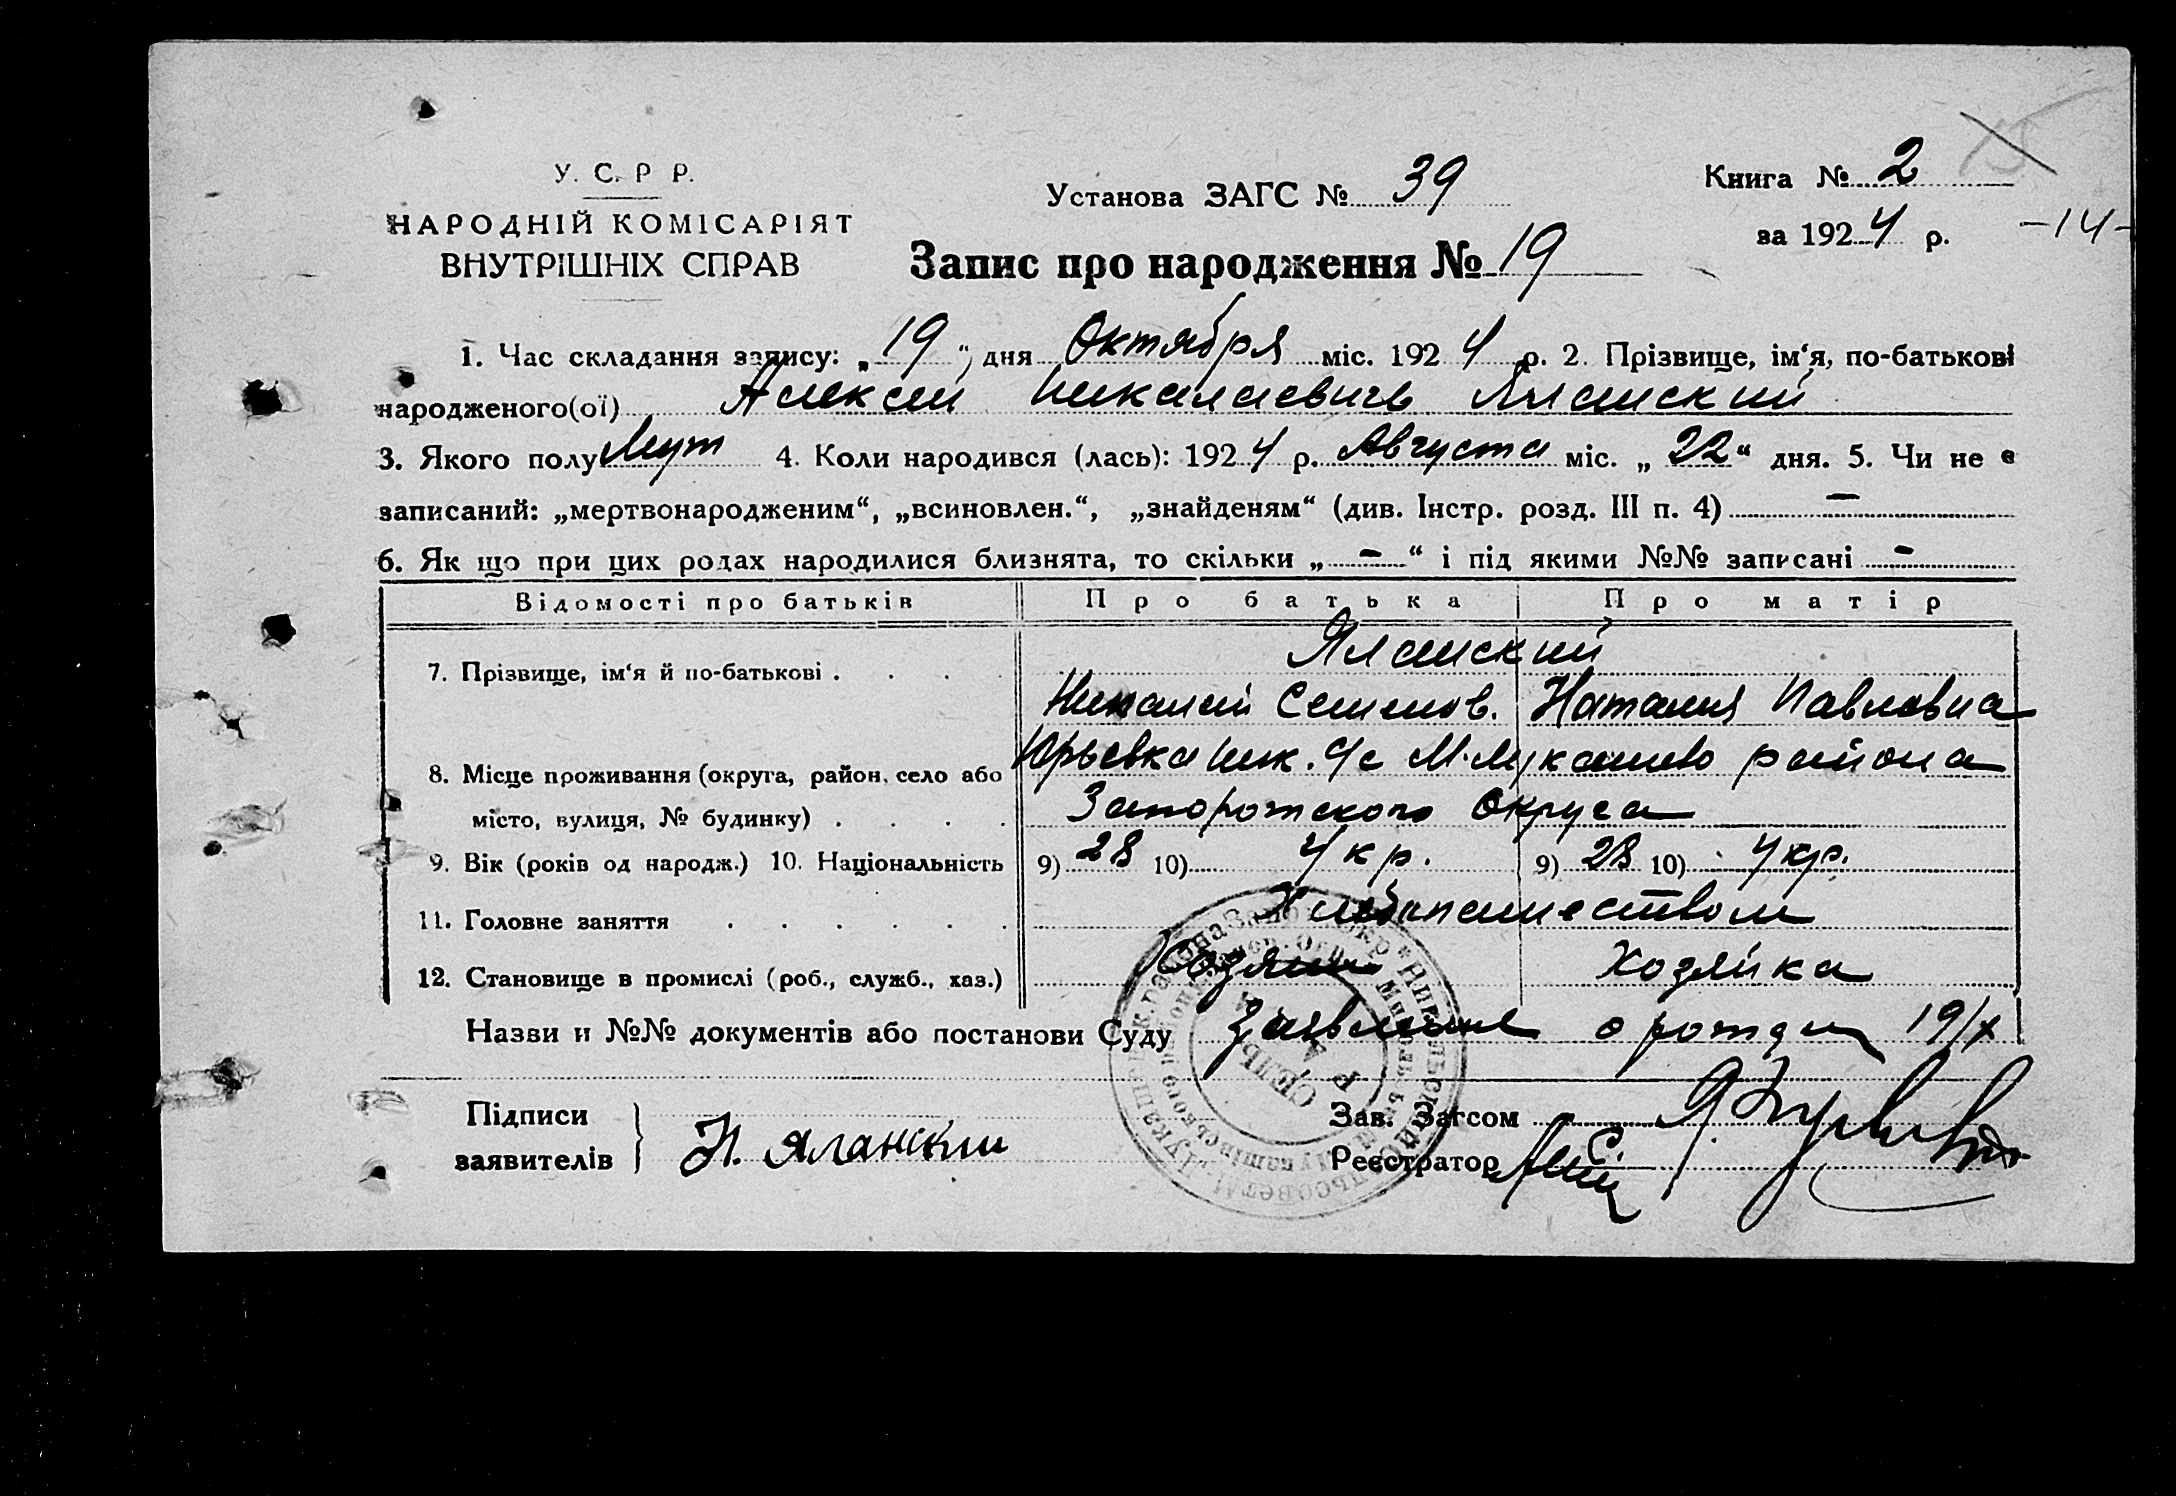 У. С. Р Р.
НАРОДНІЙ КОМІСАРІЯТ
ВНУТРІШНІХ СПРАВ
Установа ЗАГС № 39
Книга № 2
15
за 1924 р.
-14-
Запис про народження № 19
1. Час складання запису: „19“ дня Октября міс. 1924 р. 2. Прізвище, ім‘я, по-батькові
народженого(ої) Алексей Николаевичь Яланский
3. Якого полу Муж 4. Коли народився (лась): 1924 р. Августа міс. „22“ дня. 5. Чи не є
записаний: „мертвонародженим“, „всиновлен.“, „знайденям“ (див. Інстр. розд. III п. 4) —
6. Як що при цих родах народилися близнята, то скільки „—“ і під якими №№ записані —
Відомості про батьків Про батька Про матір
7. Прізвище, ім‘я й по-батькові . . . . Яланский
Николай Семенов. Наталия Павловна
8. Місце проживання (округа, район, село або Юрьевка Ник. С/с М-Лукашево района
місто, вулиця, № будинку) . . . . Запорожского Округа
9. Вік (років од народж.) 10. Національність 9) 28 10) Укр. 9) 28 10) Укр.
11. Головне заняття . . . . . . Хлебопашеством
12. Становище в промислі (роб., служб., хаз.) Хозяин Хозяйка
Назви и №№ документів або постанови Суду Заявление о рожден 19/X
Підписи
заявителів } Н. Яланский
Зав. Загсом
Реєстратор